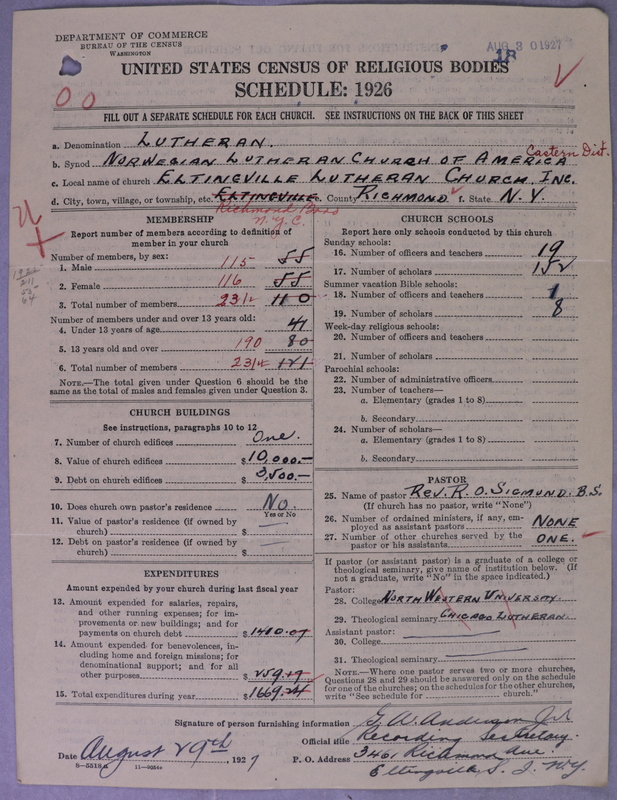 DEPARTMENT OF COMMERCE
BUREAU OF THE CENSUS
WASHINGTON
AUG 30 1927
UNITED STATES CENSUS OF RELIGIOUS BODIES
SCHEDULE: 1926
FILL OUT A SEPARATE SCHEDULE FOR EACH CHURCH. SEE INSTRUCTIONS ON THE BACK OF THIS SHEET
a. Denomination LUTHERAN.
b. Synod NORWEGIAN LUTHERAN CHURCH OF AMERICA Eastern Dist.
c. Local name of church ELTINGVILLE LUTHERAN CHURCH, INC.
d. City, town, village, or township, etc. ELTINGVILLE e. County RICHMOND f. State N.Y.
Richmond Boro
N.Y.C.
MEMBERSHIP
Report number of members according to definition of
member in your church
Number of members, by sex:
1. Male 115 55
2. Female 116 55
3. Total number of members 231 110
Number of members under and over 13 years old:
4. Under 13 years of age 41
5. 13 years old and over 190 80
6. Total number of members 231 121
NOTE.—The total given under Question 6 should be the
same as the total of males and females given under Question 3.
CHURCH BUILDINGS
See instructions, paragraphs 10 to 12
7. Number of church edifices One.
8. Value of church edifices $10,000.—
9. Debt on church edifices $3,500.—
10. Does church own pastor's residence No.
Yes or No
11. Value of pastor's residence (if owned by
church) $ —
12. Debt on pastor's residence (if owned by
church) $ —
EXPENDITURES
Amount expended by your church during last fiscal year
13. Amount expended for salaries, repairs,
and other running expenses; for im-
provements or new buildings; and for
payments on church debt $1410.07
14. Amount expended for benevolences, in-
cluding home and foreign missions; for
denominational support; and for all
other purposes $259.17
15. Total expenditures during year $1669.24
CHURCH SCHOOLS
Report here only schools conducted by this church
Sunday schools:
16. Number of officers and teachers 19
17. Number of scholars 152
Summer vacation Bible schools:
18. Number of officers and teachers 1
19. Number of scholars 8
Week-day religious schools:
20. Number of officers and teachers
21. Number of scholars
Parochial schools:
22. Number of administrative officers
23. Number of teachers—
a. Elementary (grades 1 to 8)
b. Secondary
24. Number of scholars—
a. Elementary (grades 1 to 8)
b. Secondary
PASTOR
25. Name of pastor REV. R. O. SIGMUND. B.S.
(If church has no pastor, write "None")
26. Number of ordained ministers, if any, em-
ployed as assistant pastors NONE
27. Number of other churches served by the
pastor or his assistants ONE.
If pastor (or assistant pastor) is a graduate of a college or
theological seminary, give name of institution below. (If
not a graduate, write "No" in the space indicated.)
Pastor:
28. College NORTH WESTERN UNIVERSITY
29. Theological seminary CHICAGO LUTHERAN.
Assistant pastor:
30. College
31. Theological seminary
NOTE.—Where one pastor serves two or more churches,
Questions 28 and 29 should be answered only on the schedule
for one of the churches; on the schedules for the other churches,
write "See schedule for church."
Signature of person furnishing information G. W. Anderson Jr.
Official title Recording Secretary.
Date August 29th, 1927 P. O. Address 3461 Richmond Ave.
8—5518a 11—9024a Eltingville, S. I. N.Y.